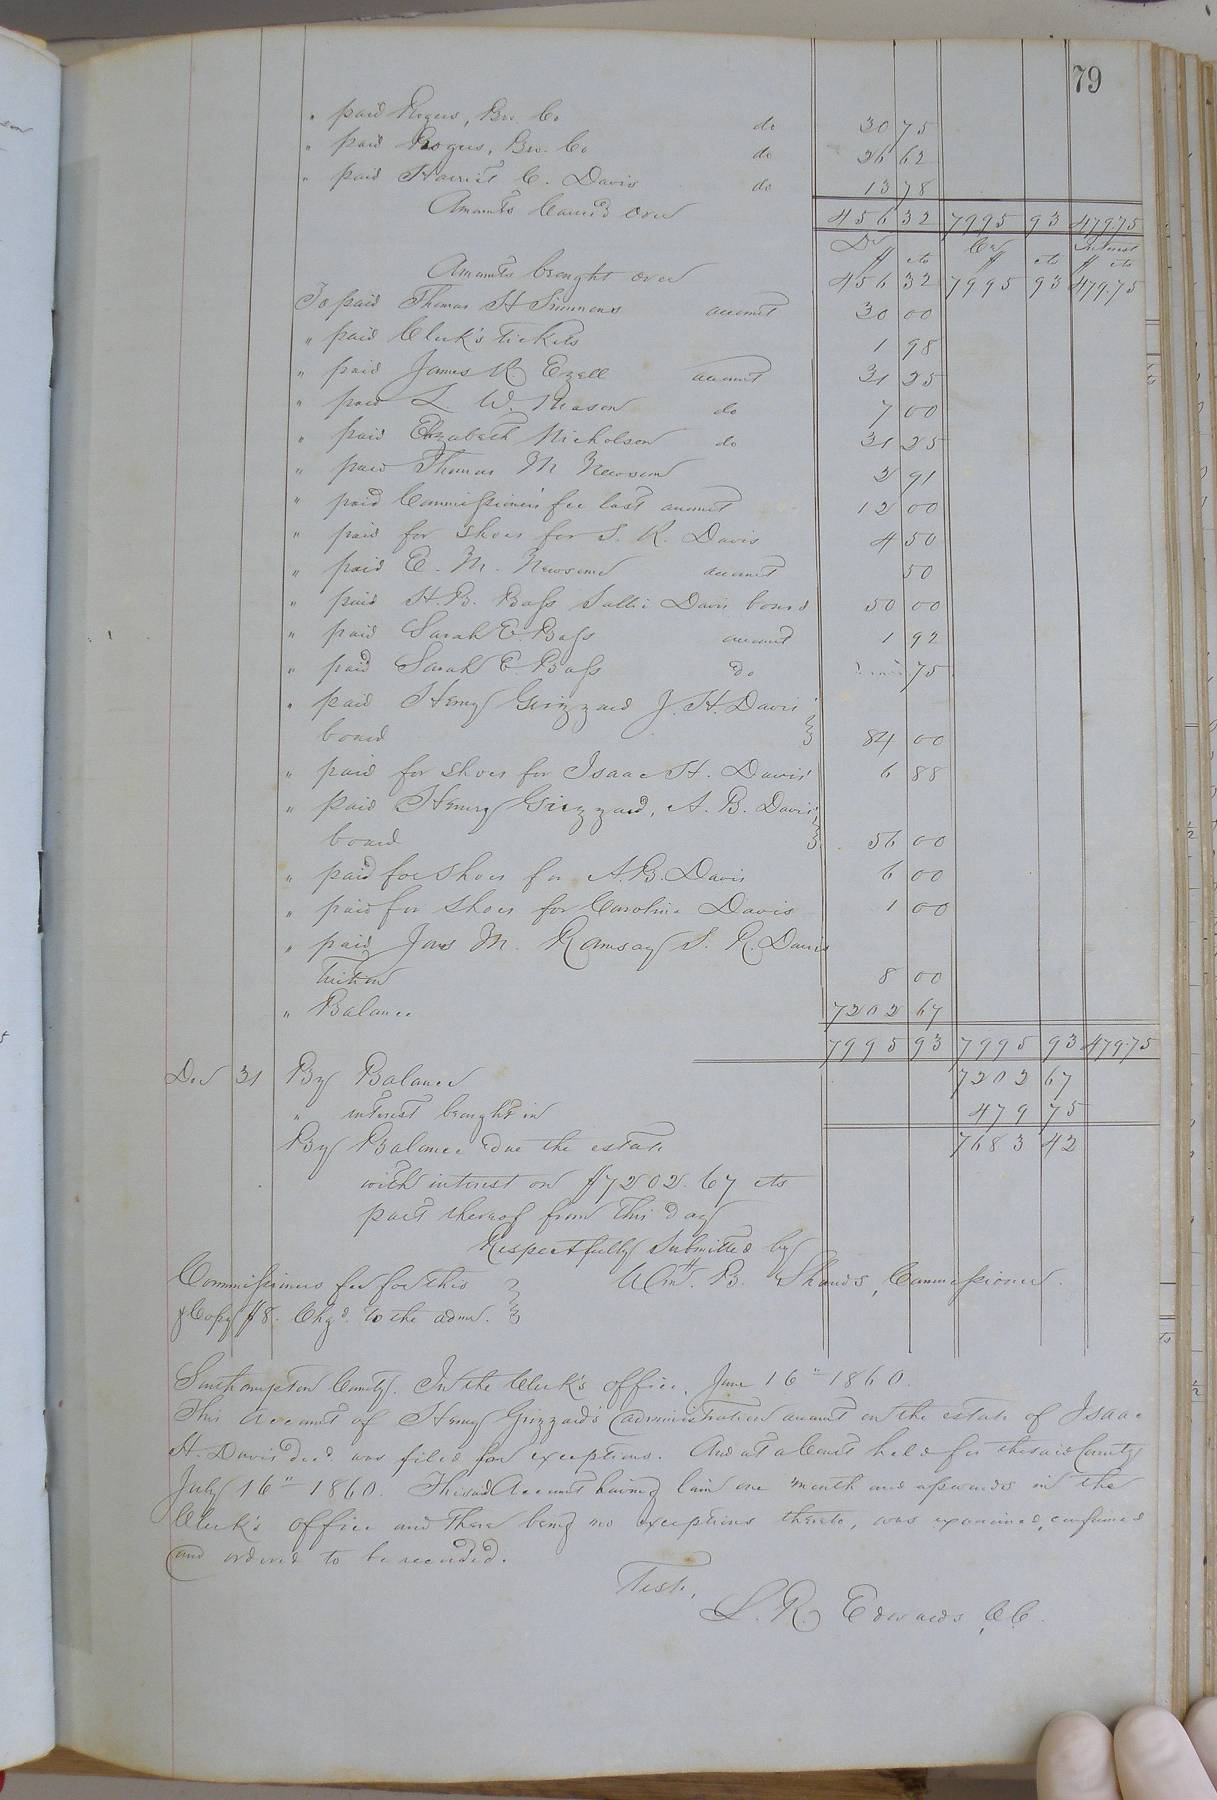 79
" paid Rogers, Bro. Co do 30 75
" paid Rogers, Bro. Co do 26 62
" paid Harriet C. Davis do 13 78
Amounts Carried over 456 32 7995 93 479.75
Dr Cr Interest
$ cts $ cts $ cts
Amounts brought over 456 32 7995 93 479.75
To paid Thomas H Simmons account 30 00
" paid Clerk's Tickets 1 98
" paid James R Ezell account 31 25
" paid L W. Mason do 7 00
" paid Elizabeth Nicholson do 31 25
" paid Thomas M Newsom 2 91
" paid Commissioners fee last account 12 00
" paid for shoes for S. R. Davis 4 50
" paid E. M. Newsome account 50
" paid H. B. Bass Sallie Davis board 50 00
" paid Sarah E. Bass account 1 92
" paid Sarah E. Bass do 75
" paid Henry Grizzard J. H. Davis'
board 84 00
" paid for shoes for Isaac H. Davis 6 88
" paid Henry Grizzard, A. B. Davis'
board 56 00
" paid for shoes for A. B. Davis 6 00
" paid for shoes for Caroline Davis 1 00
" paid Jas M. Ramsay S. R. Davis
Tuition 8 00
" Balance 7202 67
7995 93 7995 93 479.75
Dec 31 By Balance 7202 67
" interest brought in 479 75
By Balance due the estate 7683 42
with interest on $7202.67 cts
part thereof from this day
Respectfully Submitted by
Commissioners fee for this Wm. B. Shands, Commissioner.
& Copy $8. Chgd. to the admr.
Southampton County. In the Clerk's office, June 16" 1860.
This Account of Henry Grizzard's administration account on the estate of Isaac
H. Davis decd. was filed for exceptions. And at a Court held for the said County
July 16" 1860. This said Account having lain one month and upwards in the
Clerk's office and there being no exceptions thereto, was examined, confirmed
and ordered to be recorded.
Teste,
L. R. Edwards, C.C.